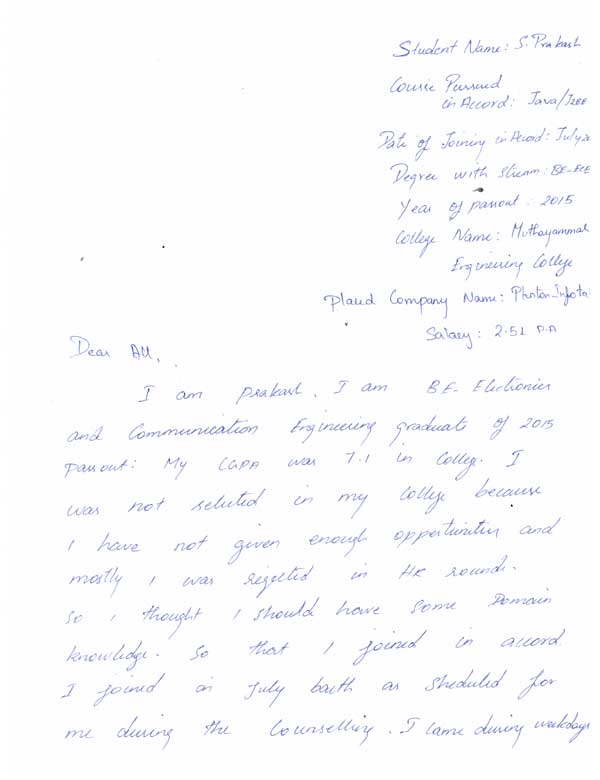 Student Name: S. Prakash
Course Pursued
in Accord: Java/J2EE
Date of Joining in Accord: July
Degree with stream: BE-ECE
Year of passout: 2015
College Name: Muthayammal
Engineering College
Placed Company Name: Photon-Infota
Salary: 2.51 P.A
Dear All,
I am prakash. I am BE- Electronics
and Communication Engineering graduate of 2015
passout: My CGPA was 7.1 in College. I
was not selected in my College because
I have not given enough opportunities and
mostly I was rejected in HR rounds.
So I thought I should have some Domain
knowledge. So that I joined in accord
I joined in July batch as sheduled for
me during the Counselling. I came during weekdays